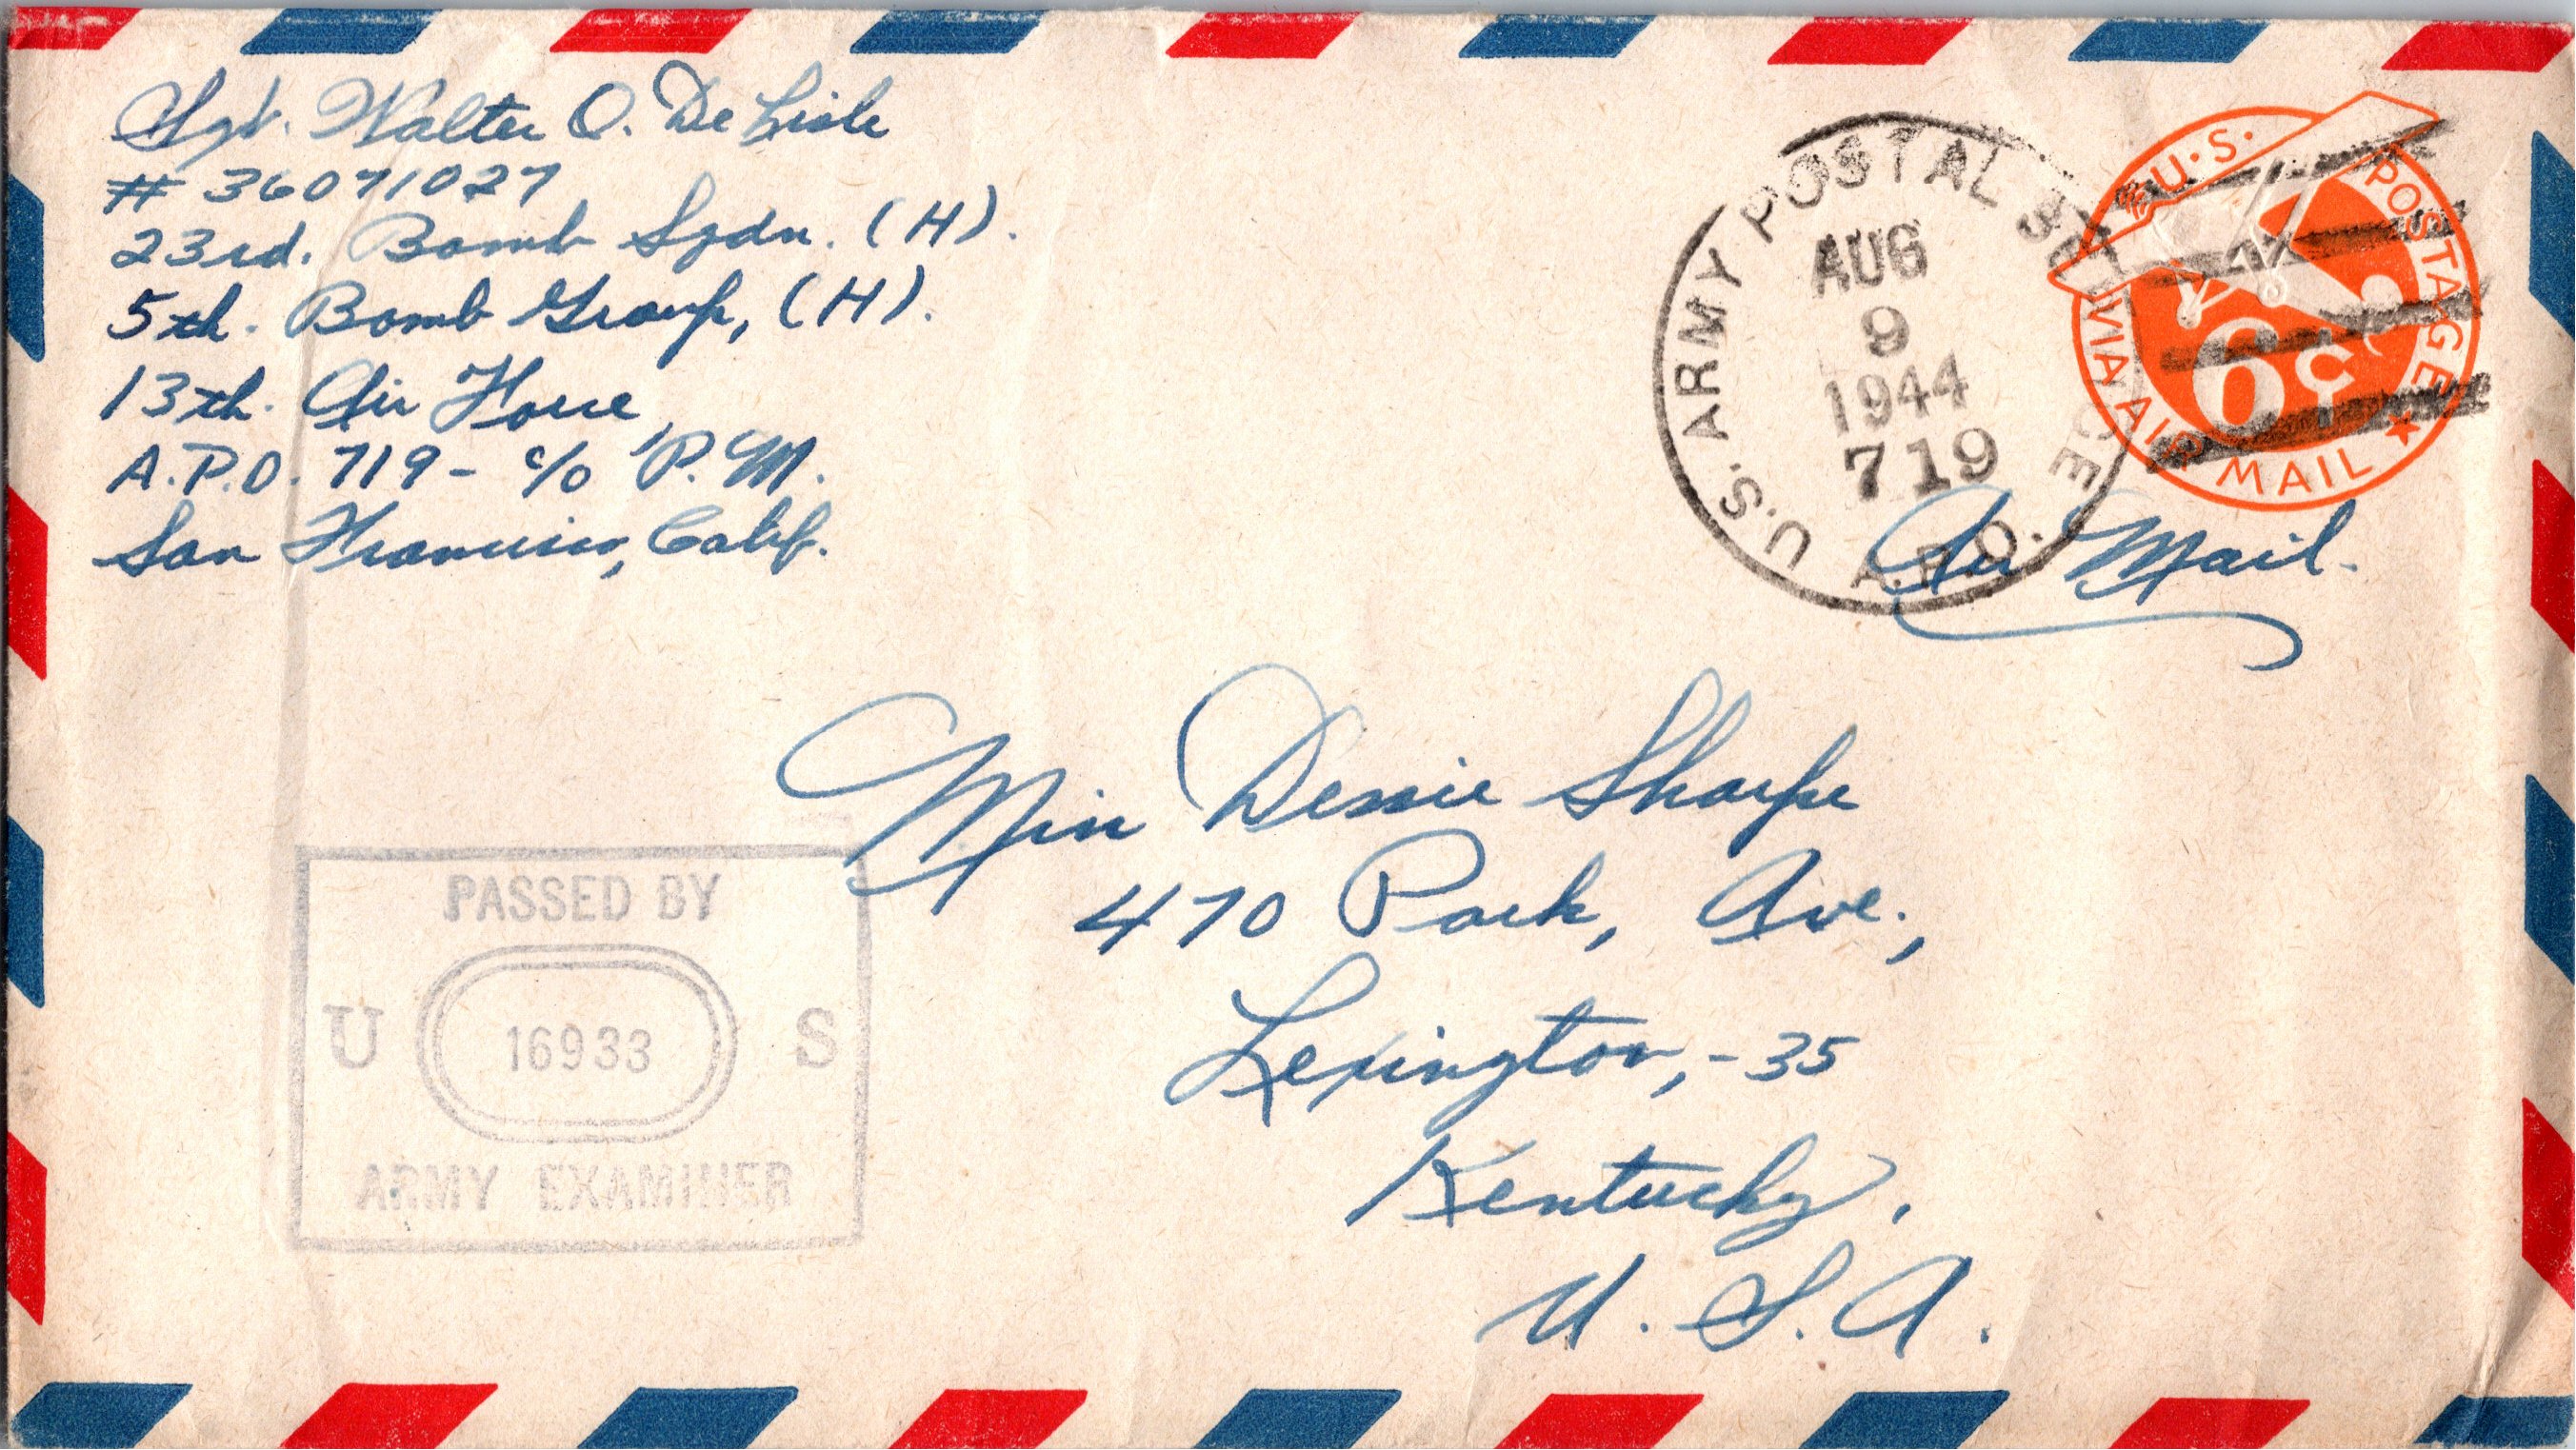 Sgt. Walter O. De Lisle
# 36071027
23rd. Bomb Sqdn. (H).
5th. Bomb Group, (H).
13th. Air Force
A.P.O. 719 - c/o P.M.
San Francisco, Calif.
U.S. ARMY POSTAL SERVICE
AUG
9
1944
719
A.P.O.
U.S. POSTAGE
6¢
VIA AIR MAIL
Air Mail.
Miss Dessie Sharpe
470 Park, Ave.,
Lexington, - 35
Kentucky.
U. S. A.
PASSED BY
U 16933 S
ARMY EXAMINER